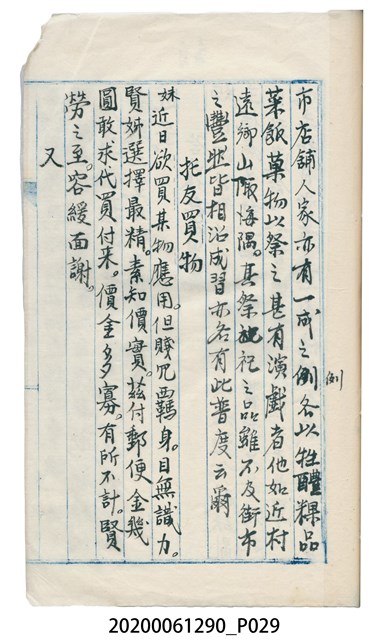 市店舖人家亦有一成之例各以牲醴粿品
例
菜飯菓物以祭之甚有演戲者他如近村
遠鄉山陬海隅。其祭祀之品雖不及街市
之豐然皆相沿成習亦各有此普度云爾
托友買物
妹近日欲買某物應用。但賤咒羈身。目無識力。
賢姊選擇最精。素知價實。茲付郵便金幾
圓敢求代買付來。價金多寡。有所不計。賢
勞之至。容緩面謝。
又
20200061290_P029